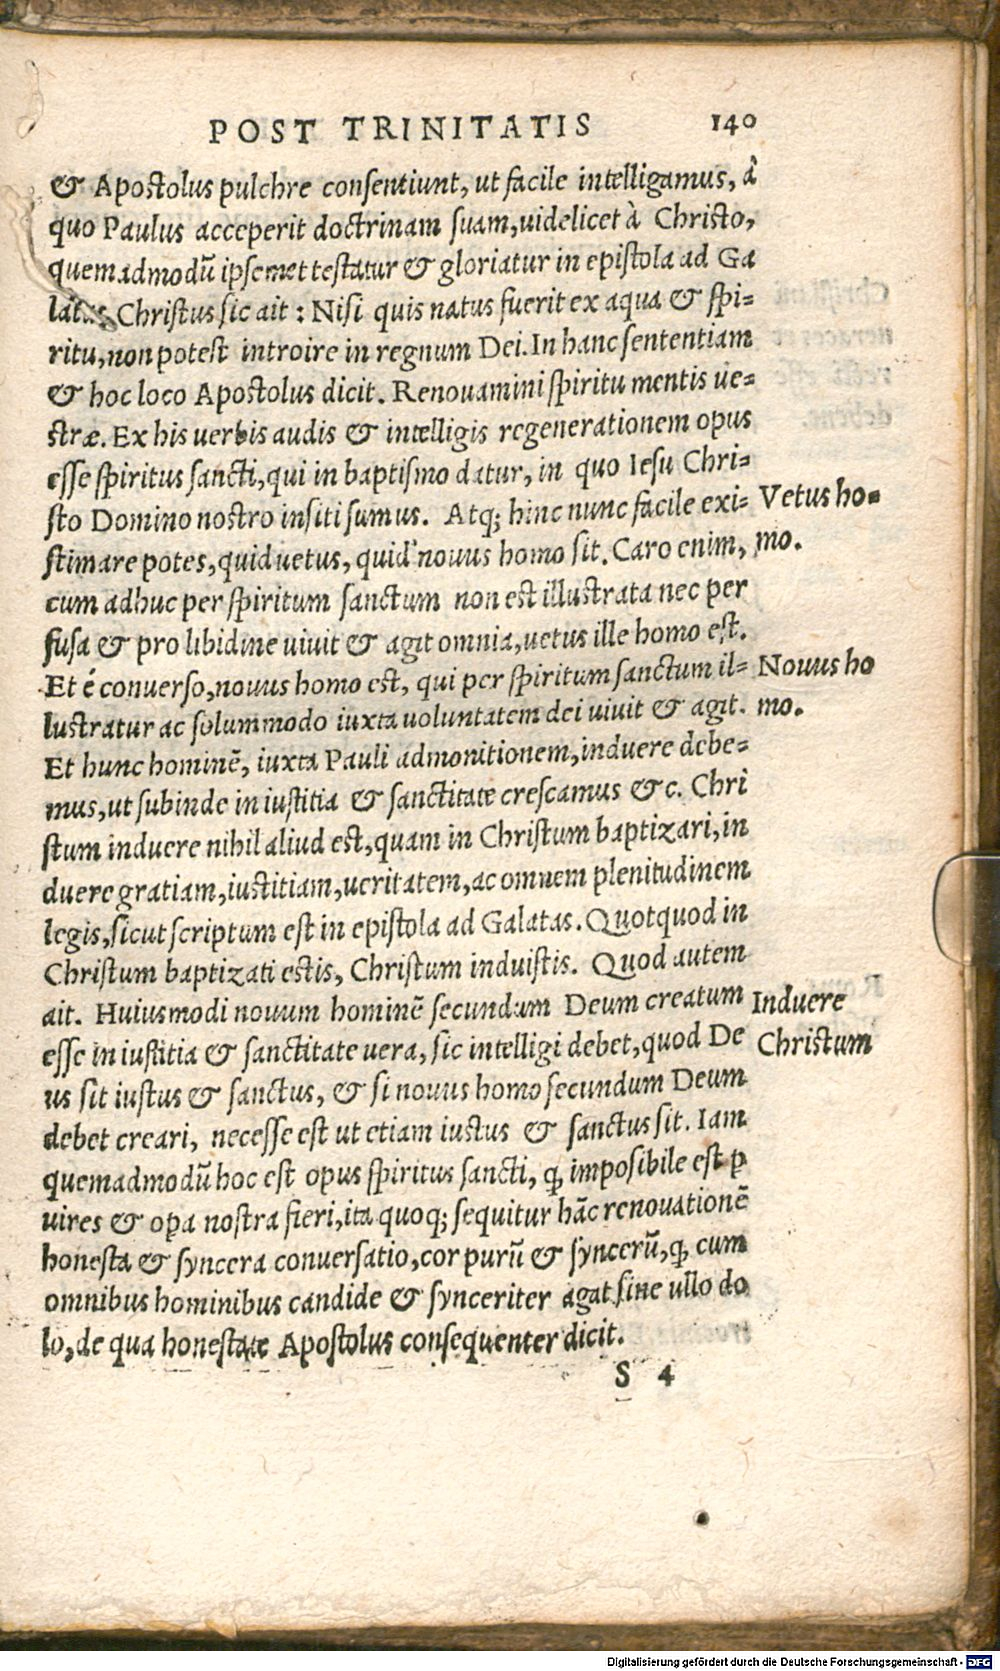 POST TRINITATIS 140
& Apostolus pulchre consentiunt, ut facile intelligamus, â
quo Paulus acceperit doctrinam suam, uidelicet à Christo,
quemadmodũ ipsemet testatur & gloriatur in epistola ad Ga
latas Christus sic ait : Nisi quis natus fuerit ex aqua & spi=
ritu, non potest introire in regnum Dei. In hanc sententiam
& hoc loco Apostolus dicit. Renouamini spiritu mentis ue=
stræ. Ex his uerbis audis & intelligis regenerationem opus
esse spiritus sancti, qui in baptismo datur, in quo Iesu Chri=
sto Domino nostro insiti sumus. Atq; hinc nunc facile exi=
stimare potes, quid uetus, quid nouus homo sit. Caro enim,
cum adhuc per spiritum sanctum non est illustrata nec per
fusa & pro libidine uiuit & agit omnia, uetus ille homo est.
Et é conuerso, nouus homo est, qui per spiritum sanctum il=
lustratur ac solummodo iuxta uoluntatem dei uiuit & agit.
Et hunc hominẽ, iuxta Pauli admonitionem, induere debe=
mus, ut subinde in iustitia & sanctitate crescamus &c. Chri
stum induere nihil aliud est, quam in Christum baptizari, in
duere gratiam, iustitiam, ueritatem, ac omnem plenitudinem
legis, sicut scriptum est in epistola ad Galatas. Quotquod in
Christum baptizati estis, Christum induistis. Quod autem
ait. Huiusmodi nouum hominẽ secundum Deum creatum
esse in iustitia & sanctitate uera, sic intelligi debet, quod De
us sit iustus & sanctus, & si nouus homo secundum Deum
debet creari, necesse est ut etiam iustus & sanctus sit. Iam
quemadmodũ hoc est opus spiritus sancti, ꝙ imposibile est ꝑ
uires & oꝑa nostra fieri, ita quoq; sequitur hãc renouationẽ
honesta & syncera conuersatio, cor purũ & syncerũ, ꝙ cum
omnibus hominibus candide & synceriter agat sine ullo do
lo, de qua honestate Apostolus consequenter dicit.
S 4
Vetus ho=
mo.
Nouus ho
mo.
Induere
Christum
Digitalisierung gefördert durch die Deutsche Forschungsgemeinschaft - DFG